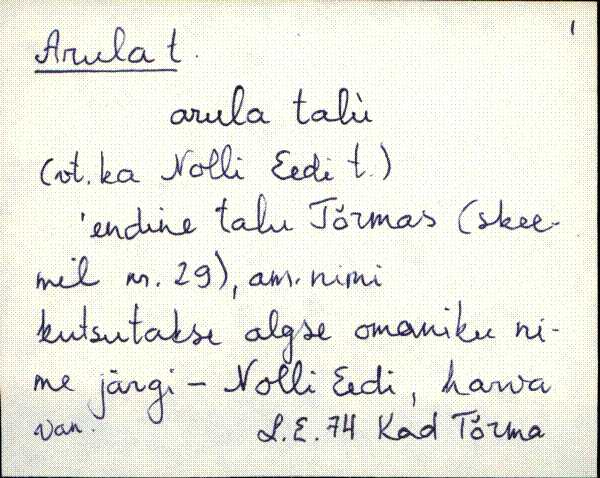 1
Arula t.
arula talù
(vt. ka Nolli Eedi t.)
'endine talu Tõrmas (skee-
mil nr. 29), am. nimi
kutsutakse algse omaniku ni-
me järgi – Nolli Eedi, harva
van. L.E. 74 Kad Tõrma